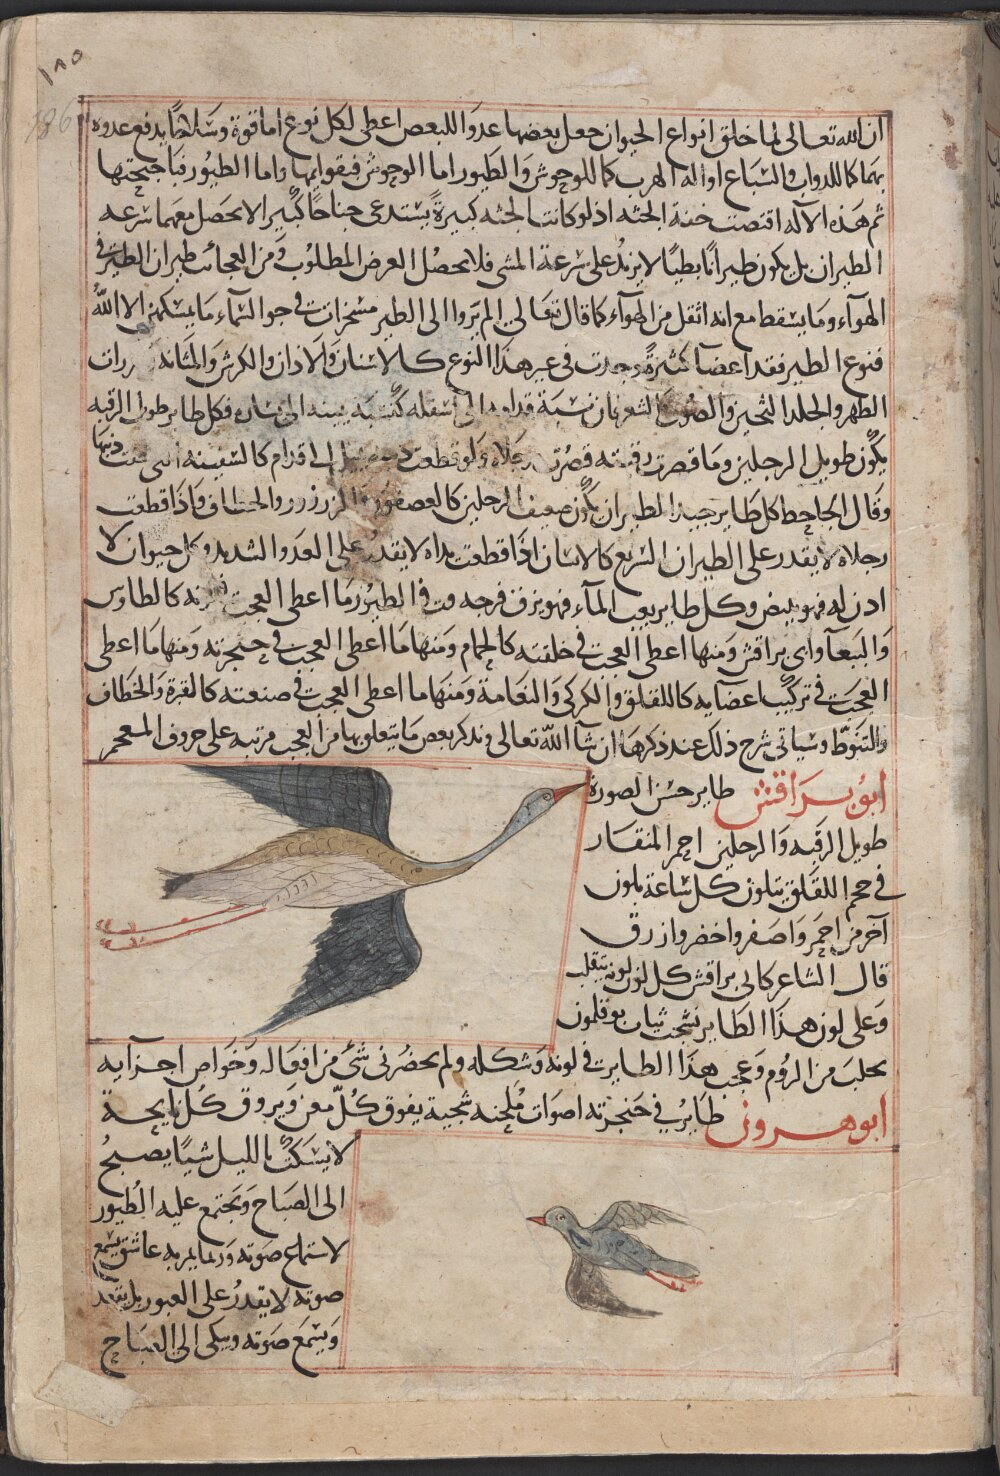 ١٨٥
186
ان الله تعالى لما خلق انواع الحيوان جعل بعضها عدوا للبعض اعطى لكل نوع اما قوة وسلاحا يدفع عدوه
بهما كما للدواب والسباع او آلة الهرب كما للوحوش والطيور اما الوحوش فبقوايمها واما الطيور فباجنحتها
ثم هذه الآله اقتضت خفة الجثه اذ لو كانت الجثه كبيرة يستدعى جناحا كبيرا لا يحصل معهما سرعه
الطيران بل يكون طيرانا بطيا لا يزيد على سرعة المشى فلا يحصل الغرض المطلوب ومن العجائب طيران الطير في
الهوآء وما يسقط مع انه اثقل من الهوآء كما قال تعالى الم يروا الى الطير مسخرات في جو السمآء ما يمسكهن الا الله
فنوع الطير فقد اعضآ كثيرة وجدت في غير هذا النوع كالاسنان والآذان والكرش والمثانه
الظهر والجلد الثخين والصوف والشعر فان نسبة قدامه الى اسفله كنسبة يمينه الى يساره فكل طاير طويل الرقبه
يكون طويل الرجلين وما قصرت رقبته قصرت رجلاه ولو قطعت الى اقدام كالسفينه
وقال الجاحظ كل طاير جيد الطيران يكون ضعيف الرجلين كالعصفور والزرزور والخطاف واذا قطعت
رجلاه لا يقدر على الطيران السريع كالانسان اذا قطعت يداه لا يقدر على العدو الشديد وكل حيوان لا
اذن له فهو يبيض وكل طاير يعب المآء فهو يزق فرخه وفى الطيور ما اعطى العجب في لونه كالطاوس
والببغآ وابى براقش ومنها اعطى العجب في خلقته كالحمام ومنها ما اعطى العجب في حنجرته ومنها ما اعطى
العجب في تركيب اعضآيه كاللقلق والكركى والنعامة ومنها ما اعطى العجب في صنعته كالقبرة والخطاف
والتنوط وسياتى شرح ذلك عند ذكرها ان شآ الله تعالى ونذكر بعض ما يتعلق بها من العجب مرتبه على حروف المعجم
ابو براقش طاير حسن الصورة
طويل الرقبه والرجلين احمر المنقار
في حجم اللقلق يتلون كل ساعة بلون
آخر من احمر واصفر واخضر وازرق
قال الشاعر كابى براقش كل لون لونه يتقلب
وعلى لون هذا الطاير نسجت ثياب بوقلمون
يجلب من الروم وعجب هذا الطاير في لونه وشكله ولم يحضرنى شئ من افواله وخواص اجزآيه
ابو هرون طاير في حنجرته اصوات ملحنه شجية يفوق كل مغن ويروق كل نايحة
لا يسكت بالليل شيا يصيح
الى الصباح وتجتمع عليه الطيور
لاستماع صوته وربما يمر به عاشق يسمع
صوته لا يقدر على العبور بل يقعد
ويسمع صوته ويبكى الى الصباح